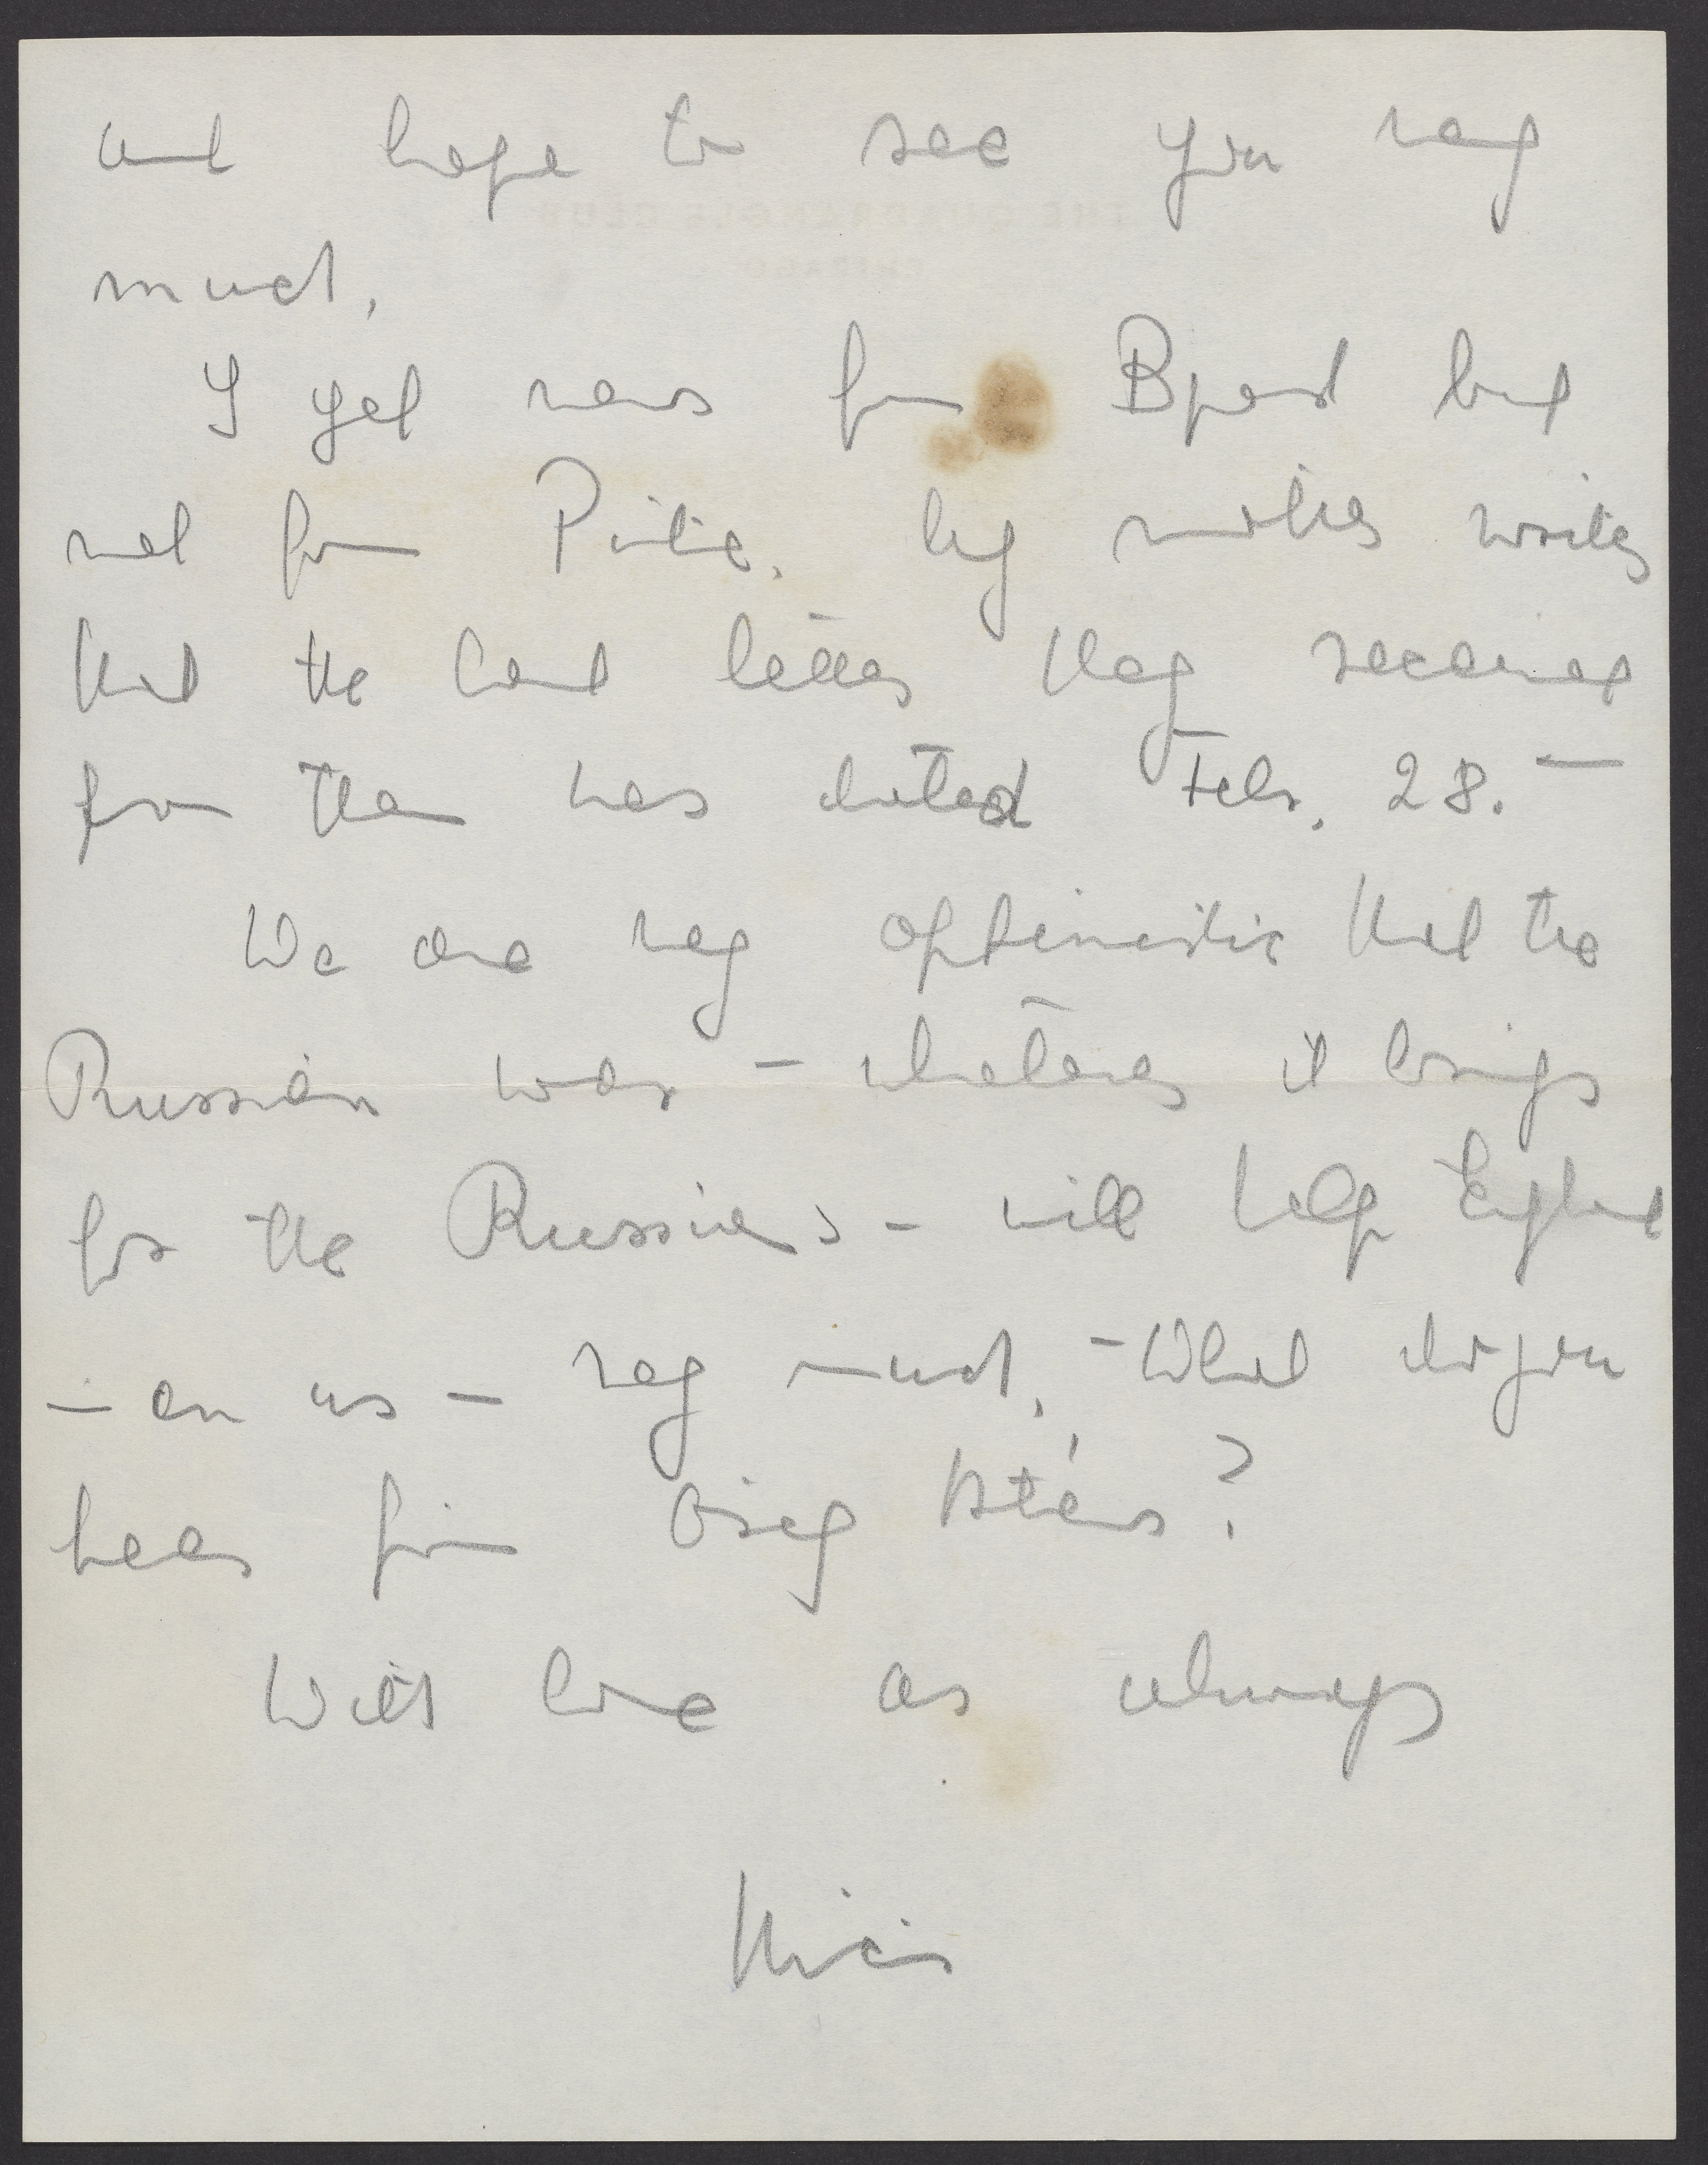 and hope to see you very
much.
I get news from Bpest but
not from Pista. My mother writes
that the last letter they received
from them was dated Feb. 28. —
We are very optimistic that the
Russian war – whatever it brings
for the Russians – will help England
– and us – very much. – What do you
hear from Öreg István?
With love as always